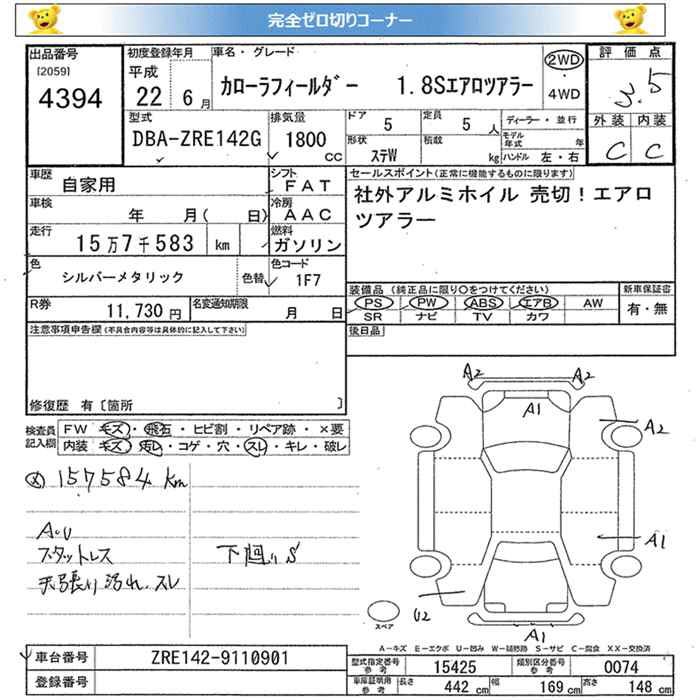 完全ゼロ切りコーナー
出品番号
[2059]
4394
初度登録年月
平成
22 6月
車名・グレード
カローラフィールダー 1.8Sエアロツアラー
2WD
・
4WD
評価点
3.5
外装 内装
C C
型式
DBA-ZRE142G
排気量
1800
cc
ドア 5
定員 5 人
形状
ステW
積載
kg
ディーラー・並行
モデル年式 年
ハンドル 左・右
車歴
自家用
シフト
FAT
車検
年 月( 日)
冷房
AAC
走行
15万7千583 km
燃料
ガソリン
色
シルバーメタリック
色替
色コード
1F7
セールスポイント(正常に機能するものに限ります)
社外アルミホイル 売切!エアロ
ツアラー
装備品 (純正品に限り○をつけてください)
PS PW ABS エアB AW
SR ナビ TV カワ
新車保証書
有・無
後日品
R券
11,730 円
名変通知期限
月 日
注意事項申告欄(不具合内容等は具体的に記入して下さい)
修復歴 有〔箇所 〕
検査員
記入欄
FW キズ・飛石・ヒビ割・リペア跡・×要
内装 キズ・汚れ・コゲ・穴・スレ・キレ・破レ
157584 km
A.U
スタットレス
天張り汚れ.スレ
下廻りS
A2
A2
A1
A2
A1
U2
A1
スペア
A-キズ E-エクボ U-凹み W-補修跡 S-サビ C-腐食 XX-交換済
車台番号
ZRE142-9110901
登録番号
型式指定番号
参考
15425
類別区分番号
参考
0074
車庫証明用
参考
長さ 442 cm
幅 169 cm
高さ 148 cm